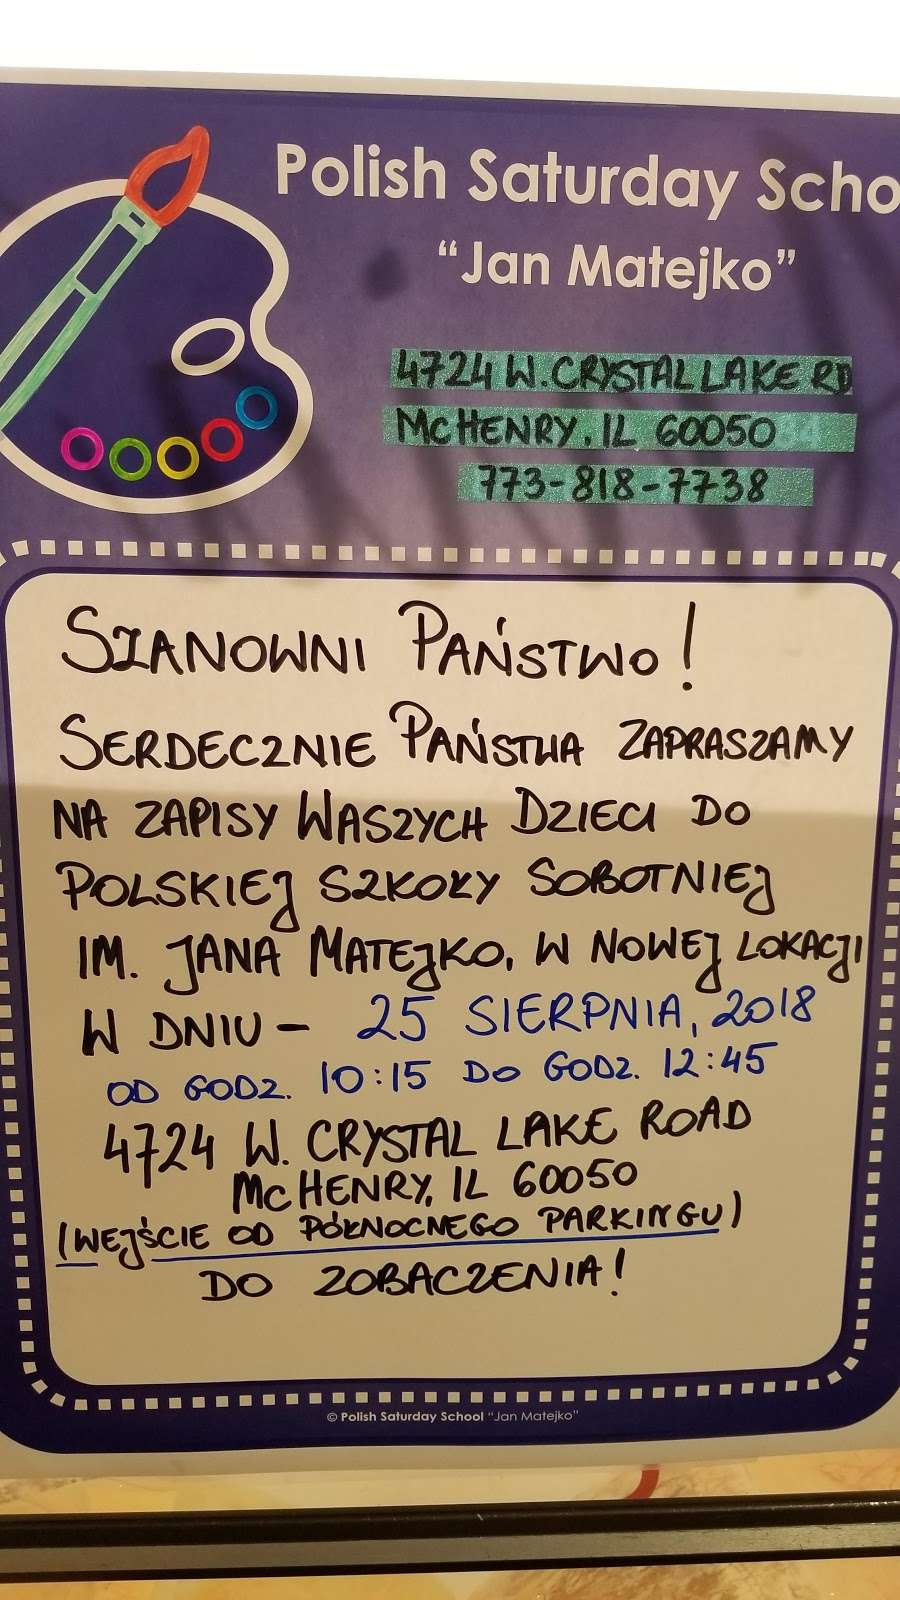 Polish Saturday Scho
“Jan Matejko”
4724 W. CRYSTAL LAKE RD
McHENRY, IL 60050
773-818-7738
SZANOWNI PAŃSTWO!
SERDECZNIE PAŃSTWA ZAPRASZAMY
NA ZAPISY WASZYCH DZIECI DO
POLSKIEJ SZKOŁY SOBOTNIEJ
IM. JANA MATEJKO, W NOWEJ LOKACJI
W DNIU – 25 SIERPNIA, 2018
OD GODZ. 10:15 DO GODZ. 12:45
4724 W. CRYSTAL LAKE ROAD
McHENRY, IL 60050
(WEJŚCIE OD PÓŁNOCNEGO PARKINGU)
DO ZOBACZENIA!
© Polish Saturday School “Jan Matejko”